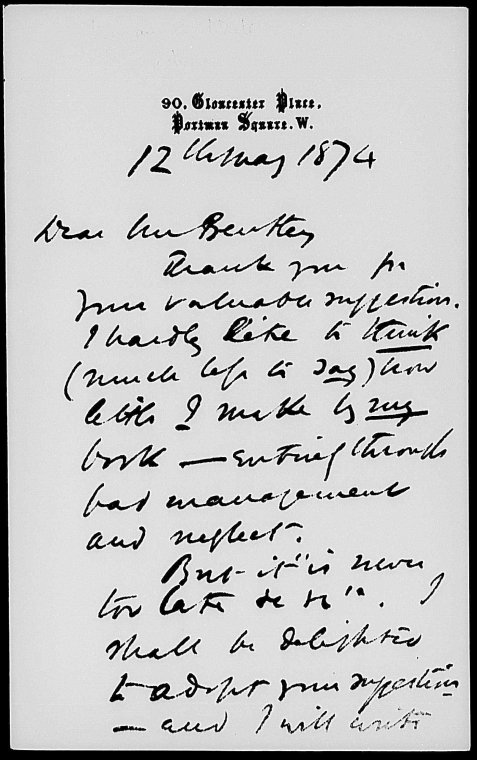 90, Gloucester Place,
Portman Square. W.
12th May 1874
Dear Mr Bentley
Thank you for
your valuable suggestion.
I hardly like to think
(much less to say) how
little I make by my
book — entirely through
bad management
and neglect.
But "it is never
too late &c &c". I
shall be delighted
to adopt your suggestion
— and I will write